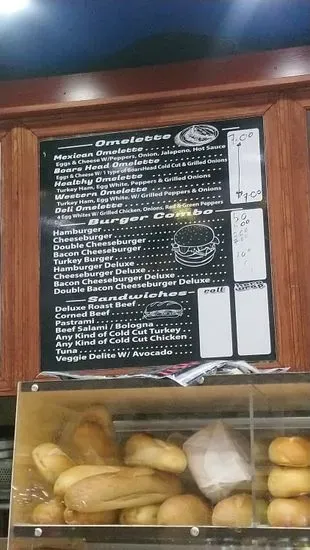 Omelette
Mexican Omelette
Eggs & Cheese W/Peppers, Onion, Jalapeno, Hot Sauce
Boars Head Omelette
Eggs & Cheese W/ 1 Type of BoarsHead Cold Cut & Grilled Onions
Healthy Omelette
Turkey Ham, Egg White, Peppers & Grilled Onions
Western Omelette
Turkey Ham, Egg White, W/ Grilled Peppers & Onions
Deli Omelette
4 Egg Whites W/ Grilled Chicken, Onions, Red & Green Peppers
7.00
7.00
Burger Combo
Hamburger
Cheeseburger
Double Cheeseburger
Bacon Cheeseburger
Turkey Burger
Hamburger Deluxe
Cheeseburger Deluxe
Bacon Cheeseburger Deluxe
Double Bacon Cheeseburger Deluxe
Sandwiches
Deluxe Roast Beef
Corned Beef
Pastrami
Beef Salami / Bologna
Any Kind of Cold Cut Turkey
Any Kind of Cold Cut Chicken
Tuna
Veggie Delite W/ Avocado